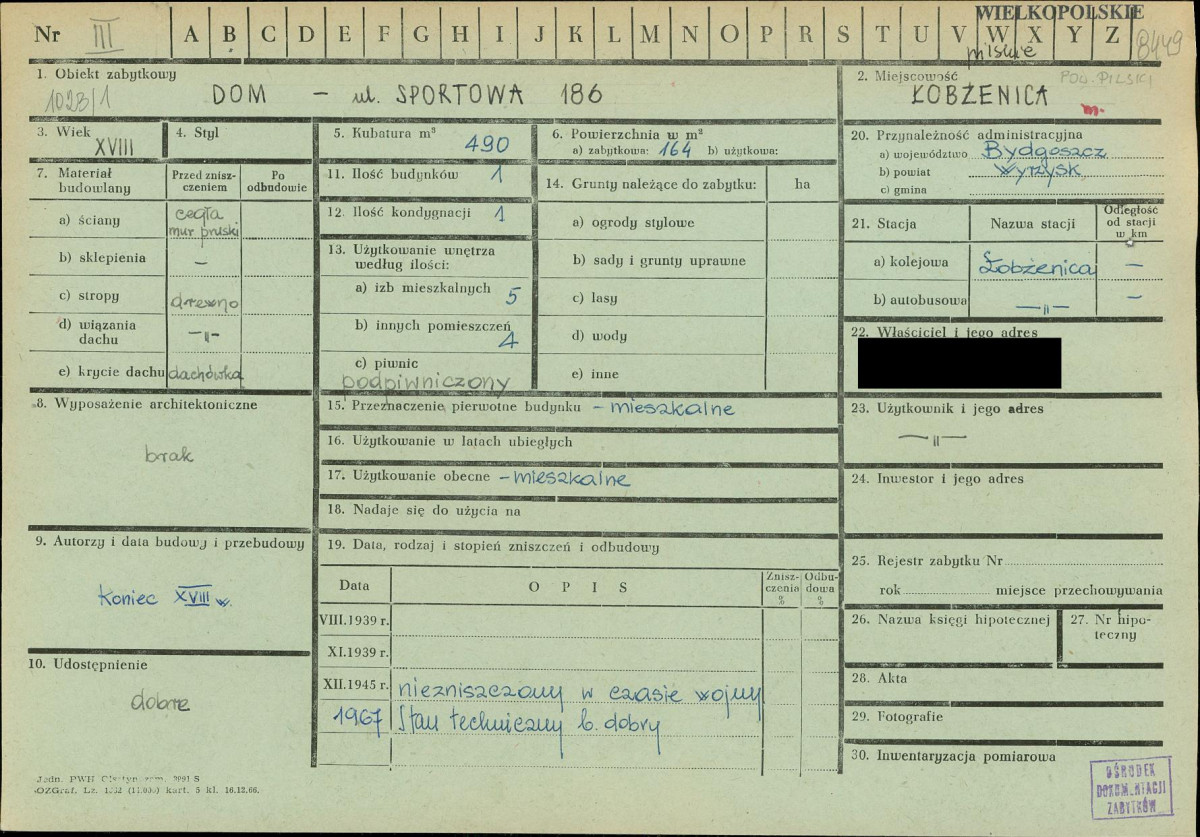 WIELKOPOLSKIE
Nr III A B C D E F G H I J K L M N O P R S T U V W X Y Z
pilskie
8449
1. Obiekt zabytkowy
1023/1
DOM – ul. SPORTOWA 186
2. Miejscowość
POW. PILSKI
ŁOBŻENICA
m.
3. Wiek
XVIII
4. Styl
5. Kubatura m³
490
6. Powierzchnia w m²
a) zabytkowa: 164 b) użytkowa:
7. Materiał budowlany
Przed zniszczeniem
Po odbudowie
a) ściany
cegła
mur pruski
b) sklepienia –
c) stropy drewno
d) wiązania dachu –"–
e) krycie dachu dachówka
8. Wyposażenie architektoniczne
brak
9. Autorzy i data budowy i przebudowy
Koniec XVIII w.
10. Udostępnienie
dobre
11. Ilość budynków 1
12. Ilość kondygnacji 1
13. Użytkowanie wnętrza
według ilości:
a) izb mieszkalnych 5
b) innych pomieszczeń 4
c) piwnic
podpiwniczony
14. Grunty należące do zabytku: ha
a) ogrody stylowe
b) sady i grunty uprawne
c) lasy
d) wody
e) inne
15. Przeznaczenie pierwotne budynku – mieszkalne
16. Użytkowanie w latach ubiegłych
17. Użytkowanie obecne – mieszkalne
18. Nadaje się do użycia na
19. Data, rodzaj i stopień zniszczeń i odbudowy
Data
O P I S
Zniszczenia %
Odbudowa %
VIII.1939 r.
XI.1939 r.
XII.1945 r. niezniszczony w czasie wojny
1967 Stan techniczny b. dobry
20. Przynależność administracyjna
a) województwo Bydgoszcz
b) powiat Wyrzysk
c) gmina
21. Stacja
Nazwa stacji
Odległość od stacji w km
a) kolejowa Łobżenica –
b) autobusowa –"– –
22. Właściciel i jego adres
23. Użytkownik i jego adres
–"–
24. Inwestor i jego adres
25. Rejestr zabytku Nr
rok miejsce przechowywania
26. Nazwa księgi hipotecznej
27. Nr hipoteczny
28. Akta
29. Fotografie
30. Inwentaryzacja pomiarowa
OŚRODEK
DOKUMENTACJI
ZABYTKÓW
Jedn. PWH Olsztyn zam. 3991 S
OZGraf. Lz. 1332 (11.000) kart. 5 kl. 16.12.66.